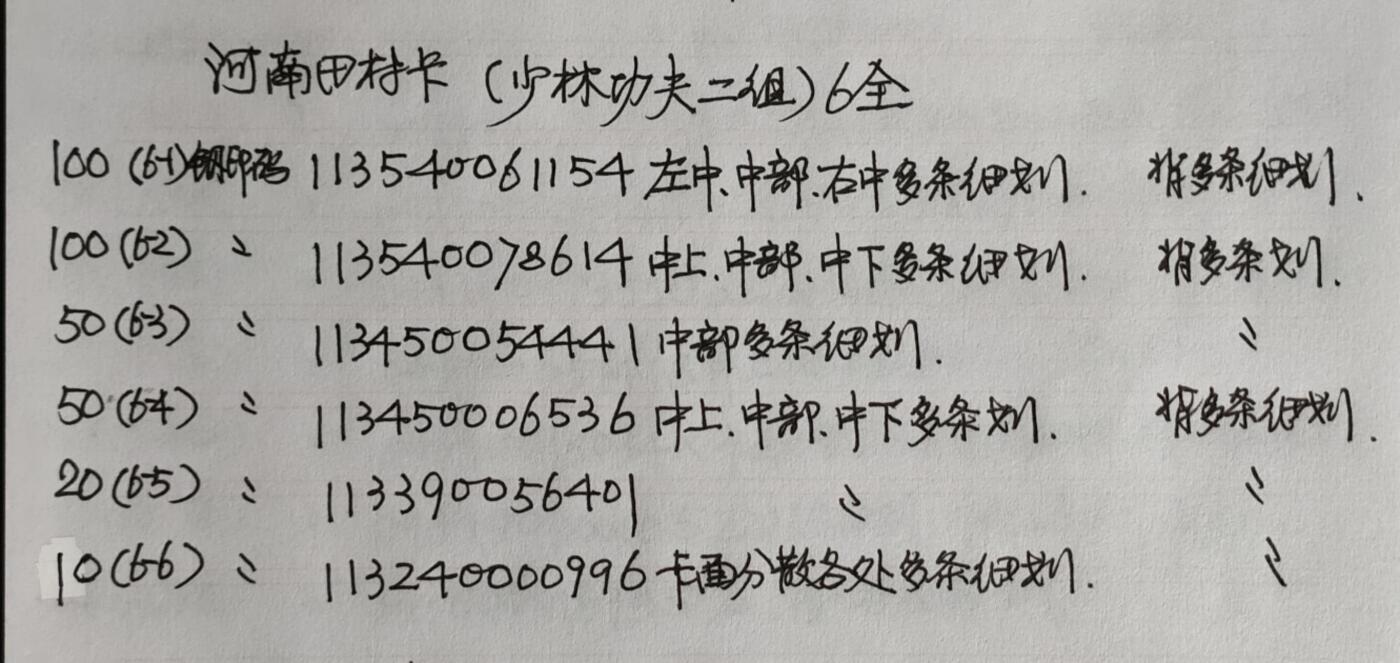 河南田村卡（少林功夫二组）6全
100（6-1）钢印码 113540061154 左中、中部、右中多条细划. 背多条细划.
100（6-2） 〃 113540078614 中上、中部、中下多条细划. 背多条划.
50（6-3） 〃 113450054441 中部多条细划. 〃
50（6-4） 〃 113450006536 中上、中部、中下多条划. 背多条细划.
20（6-5） 〃 113390056401 〃 〃
10（6-6） 〃 113240000996 卡面分散各处多条细划. 〃